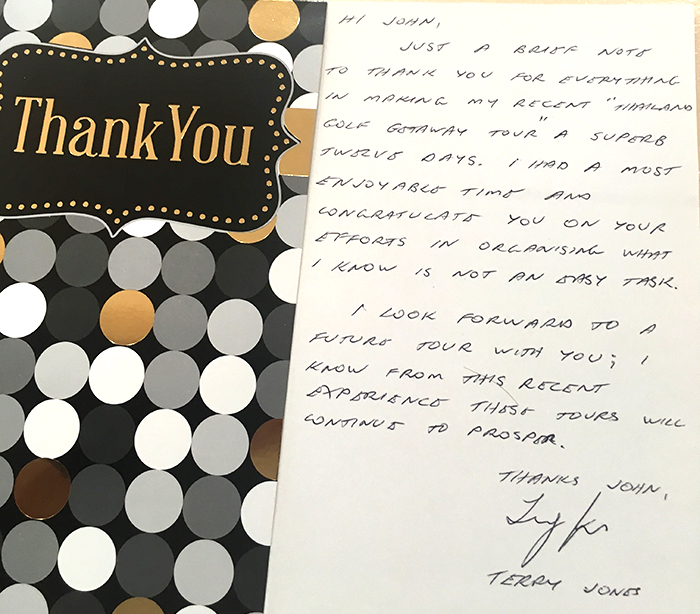 Thank You
HI JOHN,
JUST A BRIEF NOTE
TO THANK YOU FOR EVERYTHING
IN MAKING MY RECENT "THAILAND
GOLF GETAWAY TOUR" A SUPERB
TWELVE DAYS. I HAD A MOST
ENJOYABLE TIME AND
CONGRATULATE YOU ON YOUR
EFFORTS IN ORGANISING WHAT
I KNOW IS NOT AN EASY TASK.
I LOOK FORWARD TO A
FUTURE TOUR WITH YOU; I
KNOW FROM THIS RECENT
EXPERIENCE THESE TOURS WILL
CONTINUE TO PROSPER.
THANKS JOHN,
TERRY JONES